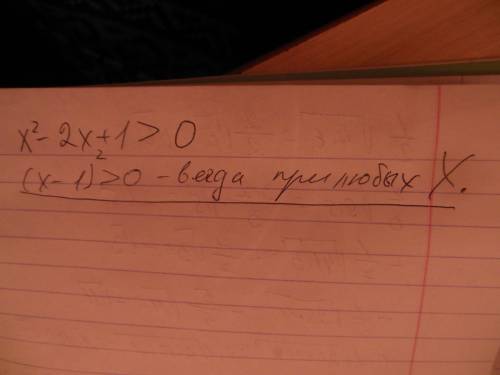 x² - 2x + 1 > 0
(x - 1)² > 0 - всегда при любых X.